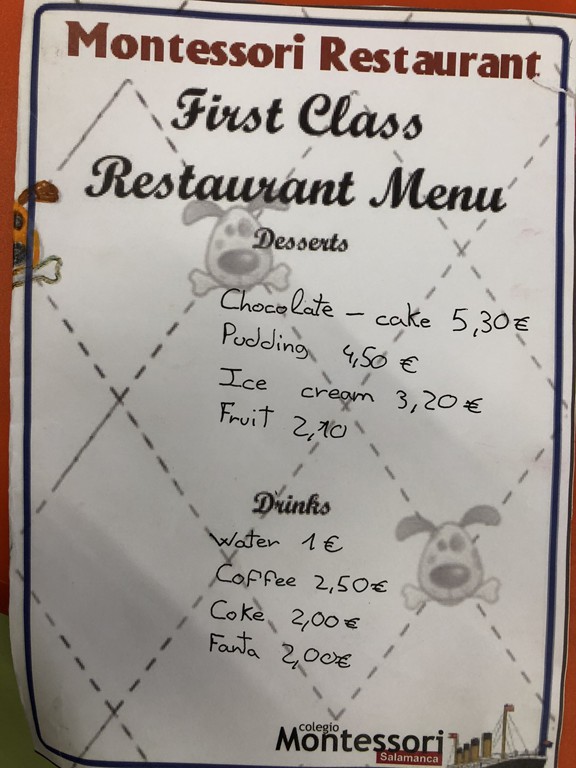 Montessori Restaurant
First Class
Restaurant Menu
Desserts
Chocolate - cake 5,30€
Pudding 4,50 €
Ice cream 3,20€
Fruit 2,10
Drinks
Water 1€
Coffee 2,50€
Coke 2,00€
Fanta 2,00€
colegio
Montessori
Salamanca